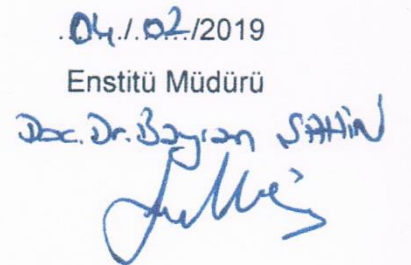 .04./.02../2019
Enstitü Müdürü
Doc. Dr. Bayram ŞAHİN